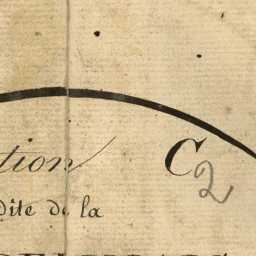 tion C
2
dite de la